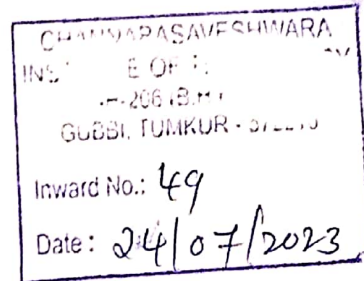 CHANNABASAVESHWARA
E OF
206 (B.H
GUBBI, TUMKUR -
Inward No.: 49
Date: 24/07/2023